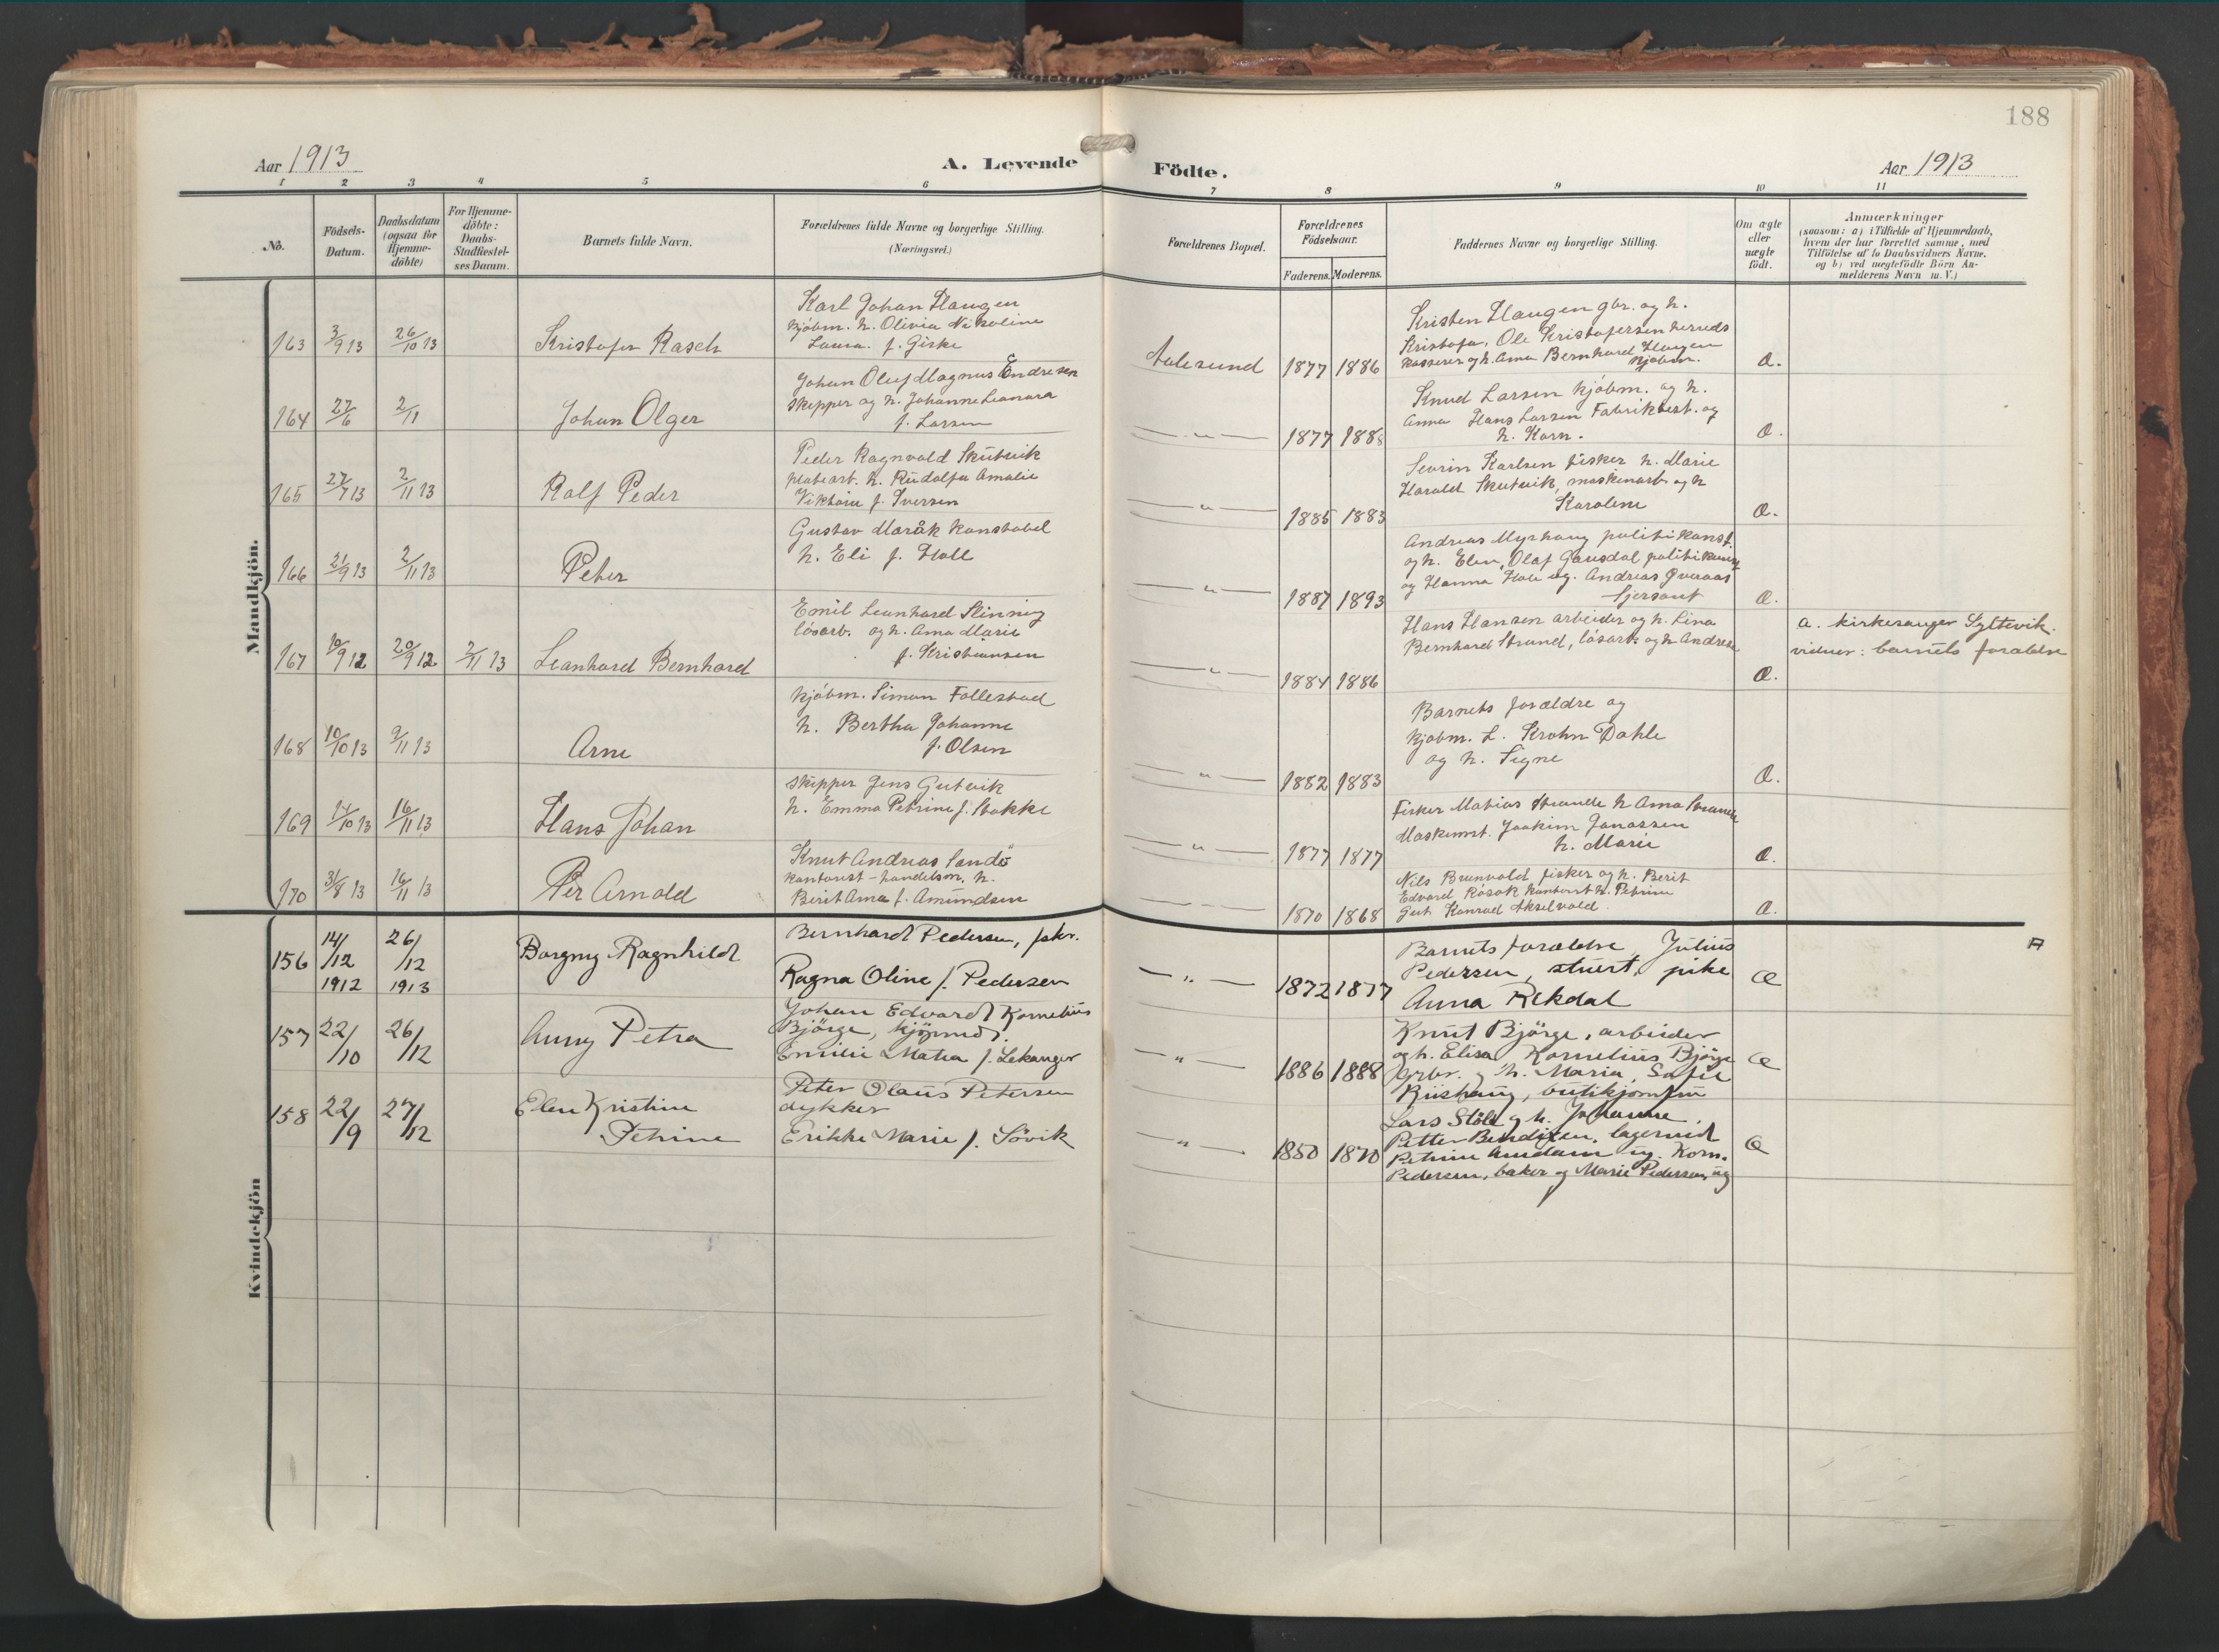 188
Aar 1913
A. Levende
Födte.
Aar 1913
1 2 3 4 5 6 7 8 9 10 11
No.
Födsels-
Datum.
Daabsdatum
(ogsaa for
Hjemme-
döbte)
For Hjemme-
döbte:
Daabs-
Stadfæstel-
ses Datum.
Barnets fulde Navn.
Forældrenes fulde Navne og borgerlige Stilling.
(Næringsvei.)
Forældrenes Bopæl.
Forældrenes
Födselsaar.
Faderens. Moderens.
Faddernes Navne og borgerlige Stilling.
Om ægte
eller
uægte
födt.
Anmærkninger
(saasom: a) i Tilfælde af Hjemmedaab,
hvem der har forrettet samme, med
Tilföielse af to Daabsvidners Navne,
og b) ved uægtefödte Börn An-
melderens Navn m. V.)
Mandkjön.
163 3/9 13 26/10 13 Kristofer Rasch
Karl Johan Haugen
kjöbm. h. Olivia Nikoline
Laura f. Giske
Aalesund 1877 1886
Kristen Haugen gbr. og h.
Kristofa, Ole Kristofersen herreds
kasserer og h. Anna Bernhard Haugen
kjöbm.
Æ.
164 27/6 2/11 Johan Olger
Johan Oluf Magnus Endresen
skipper og h. Johanne Leonara
f. Larsen
— " — 1877 1888
Knud Larsen kjöbm. og h.
Anna Hans Larsen Fabrikbest. og
h. Karn.
Æ.
165 27/7 13 2/11 13 Rolf Peder
Peder Ragnvald Skutvik
platearb. h. Rudolfa Amalie
Viktoria f. Iversen
— " — 1885 1883
Sevrin Karlsen fisker h. Marie
Harald Skutvik, maskinarb. og h
Karoline
Æ.
166 21/9 13 2/11 13 Peter
Gustav Maråk konstabel
h. Eli f. Hall
— " — 1887 1893
Andreas Myrhaug politikonst.
og h. Elen, Olaf Gausdal politikonst
og Hanna Hole ug. Andreas Øveraas
sjersant
Æ.
167 10/9 12 20/9 12 2/11 13 Leonhard Bernhard
Emil Leonhard Slinning
lösarb. og h. Anna Marie
f. Kristiansen
— " — 1884 1886
Hans Hansen arbeider og h. Lina
Bernhard Strand, lösarb. og h. Andrea
Æ.
a. kirkesanger Syltevik.
vidner: barnets forældre
168 10/10 13 9/11 13 Arne
kjöbm. Simon Follestad
h. Bertha Johanne
f. Olsen
— " — 1882 1883
Barnets forældre og
kjöbm. L. Krohn Dahle
og h. Signe
Æ.
169 14/10 13 16/11 13 Hans Johan
skipper Jens Gutvik
h. Emma Petrine f. Stokke
— " — 1877 1877
Fisker Matias Strande h Anna Strande
Maskinist. Joakim Jonassen
h. Marie
Æ.
170 31/8 13 16/11 13 Per Arnold
Knut Andreas Sandö
kontorist - handelsm. h.
Berit Anna f. Amundsen
— - — 1870 1868
Nils Brunvold fisker og h. Berit
Edvard Råsok kontorist h. Petrine
Gert Konrad Akselvold.
Æ.
Kvindekjön
156 14/12 1912 26/12 1913 Borgny Ragnhild
Bernhard Pedersen, fskr.
Ragna Oline f. Pedersen
— " — 1872 1877
Barnets forældre, Julius
Pedersen, stuert, pike
Anna Rekdal
Æ
157 22/10 26/12 Anny Petra
Johan Edvard Kornelius
Björge, kjöpmd.
Emilie Matea f. Lekanger
— " — 1886 1888
Knut Björge, arbeider
og h. Elisa Kornelius Björge
grbr. og h. Maria, Sofie
Riishaug, butikjomfru
Æ
158 22/9 27/12 Elen Kristine
Petrine
Peter Olaus Petersen
dykker
Erikke Marie f. Sövik
— " — 1850 1870
Lars Stöle og h. Johanne,
Petter Bendixen, lagermd
Petrine Amdam ug. Korn.
Pedersen, baker og Marie Pedersen, ug
Æ